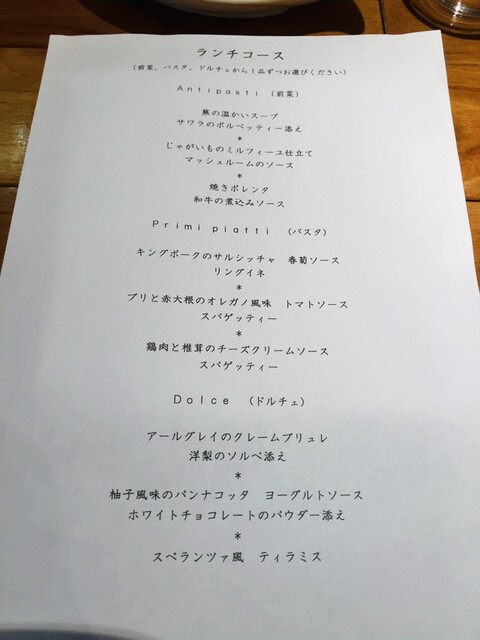 ランチコース
（前菜、パスタ、ドルチェから１品ずつお選びください）
Ａｎｔｉｐａｓｔｉ （前菜）
蕪の温かいスープ
サワラのポルペッティー添え
＊
じゃがいものミルフィーユ仕立て
マッシュルームのソース
＊
焼きポレンタ
和牛の煮込みソース
Ｐｒｉｍｉ ｐｉａｔｔｉ （パスタ）
キングポークのサルシッチャ　春菊ソース
リングイネ
＊
ブリと赤大根のオレガノ風味　トマトソース
スパゲッティー
＊
鶏肉と椎茸のチーズクリームソース
スパゲッティー
Ｄｏｌｃｅ （ドルチェ）
アールグレイのクレームブリュレ
洋梨のソルベ添え
＊
柚子風味のパンナコッタ　ヨーグルトソース
ホワイトチョコレートのパウダー添え
＊
スペランツァ風　ティラミス